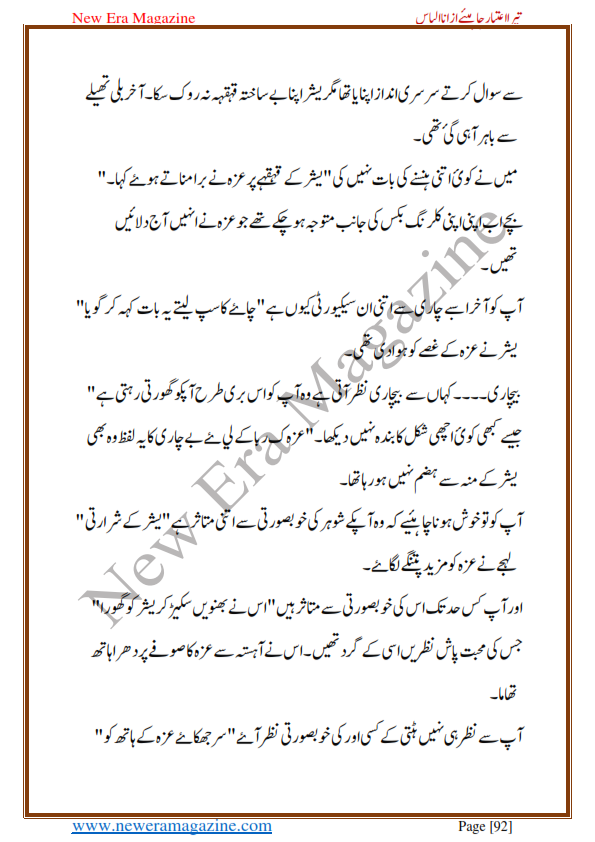 New Era Magazine
تیرا اعتبار چاہیئے از انا الیاس
سے سوال کرتے سرسری انداز اپنایا تھا مگر یشر اپنا بے ساختہ قہقہہ نہ روک سکا۔ آخر بلی تھیلے
سے باہر آہی گئ تھی۔
میں نے کوئ اتنی ہنسنے کی بات نہیں کی" یشر کے قہقہے پر عزہ نے برا مناتے ہوئے کہا۔"
بچے اب اپنی اپنی کلرنگ بکس کی جانب متوجہ ہو چکے تھے جو عزہ نے انہیں آج دلائیں
تھیں۔
آپ کو آخر اسے چاری سے اتنی ان سیکیورٹی کیوں ہے" چائے کا سپ لیتے یہ بات کہہ کر گویا"
یشر نے عزہ کے غصے کو ہوا دی تھی۔
بیچاری۔۔۔۔ کہاں سے بیچاری نظر آتی ہے وہ آپ کو اس بری طرح آپکو گھورتی رہتی ہے"
جیسے کبھی کوئ اچھی شکل کا بندہ نہیں دیکھا۔" عزہ ک رہا کے لیۓ بے چاری کا یہ لفظ وہ بھی
یشر کے منہ سے ہضم نہیں ہو رہا تھا۔
آپ کو تو خوش ہونا چاہئیے کہ وہ آپکے شوہر کی خوبصورتی سے اتنی متاثر ہے" یشر کے شرارتی"
لہجے نے عزہ کو مزید پتنگے لگائے۔
اور آپ کس حد تک اس کی خوبصورتی سے متاثر ہیں" اس نے بھنویں سکیڑ کر یشر کو گھورا"
جس کی محبت پاش نظریں اسی کے گرد تھیں۔ اس نے آہستہ سے عزہ کا صوفے پر دھرا ہاتھ
تھاما۔
آپ سے نظر ہی نہیں ہٹتی کے کسی اور کی خوبصورتی نظر آئے" سر جھکائے عزہ کے ہاتھ کو"
New Era Magazine
www.neweramagazine.com
Page [92]